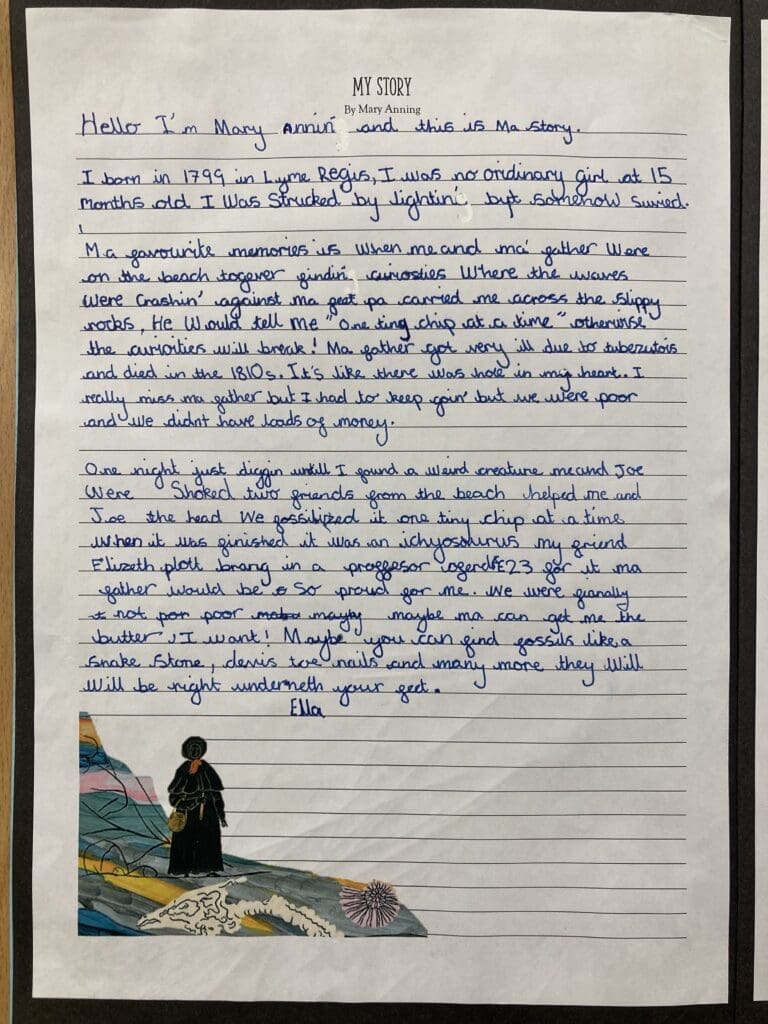 MY STORY
By Mary Anning
Hello I'm Mary Annin' and this is Ma story.
I born in 1799 in Lyme Regis, I was no oridinary girl at 15
months old I was Strucked by lightin' but somehow suvied.
Ma favourite memories is when me and ma' father were
on the beach togever findin' curiosties Where the waves
were crashin' against ma feet pa carried me across the slippy
rocks, He would tell me "One ting chip at a time" otherwise
the curiorities will break! Ma father got very ill due to tuberzutois
and died in the 1810s. It's like there was hole in my heart. I
really miss ma father but I had to keep goin' but we were poor
and we didnt have loads of money.
One night just diggin untill I found a weird creature me and Joe
Were Shoked two friends from the beach helped me and
Joe the head We fossilized it one tiny chip at a time
When it was finished it was an ichyosaurus my friend
Elizeth plott brang in a proffesor £23 for it ma
father would be so proud for me. We were fianally
not poor maybe ma can get me the
butter I want! Maybe you can find fossils like a
snake stone, devis toe nails and many more they will
will be right underneth your feet.
Ella